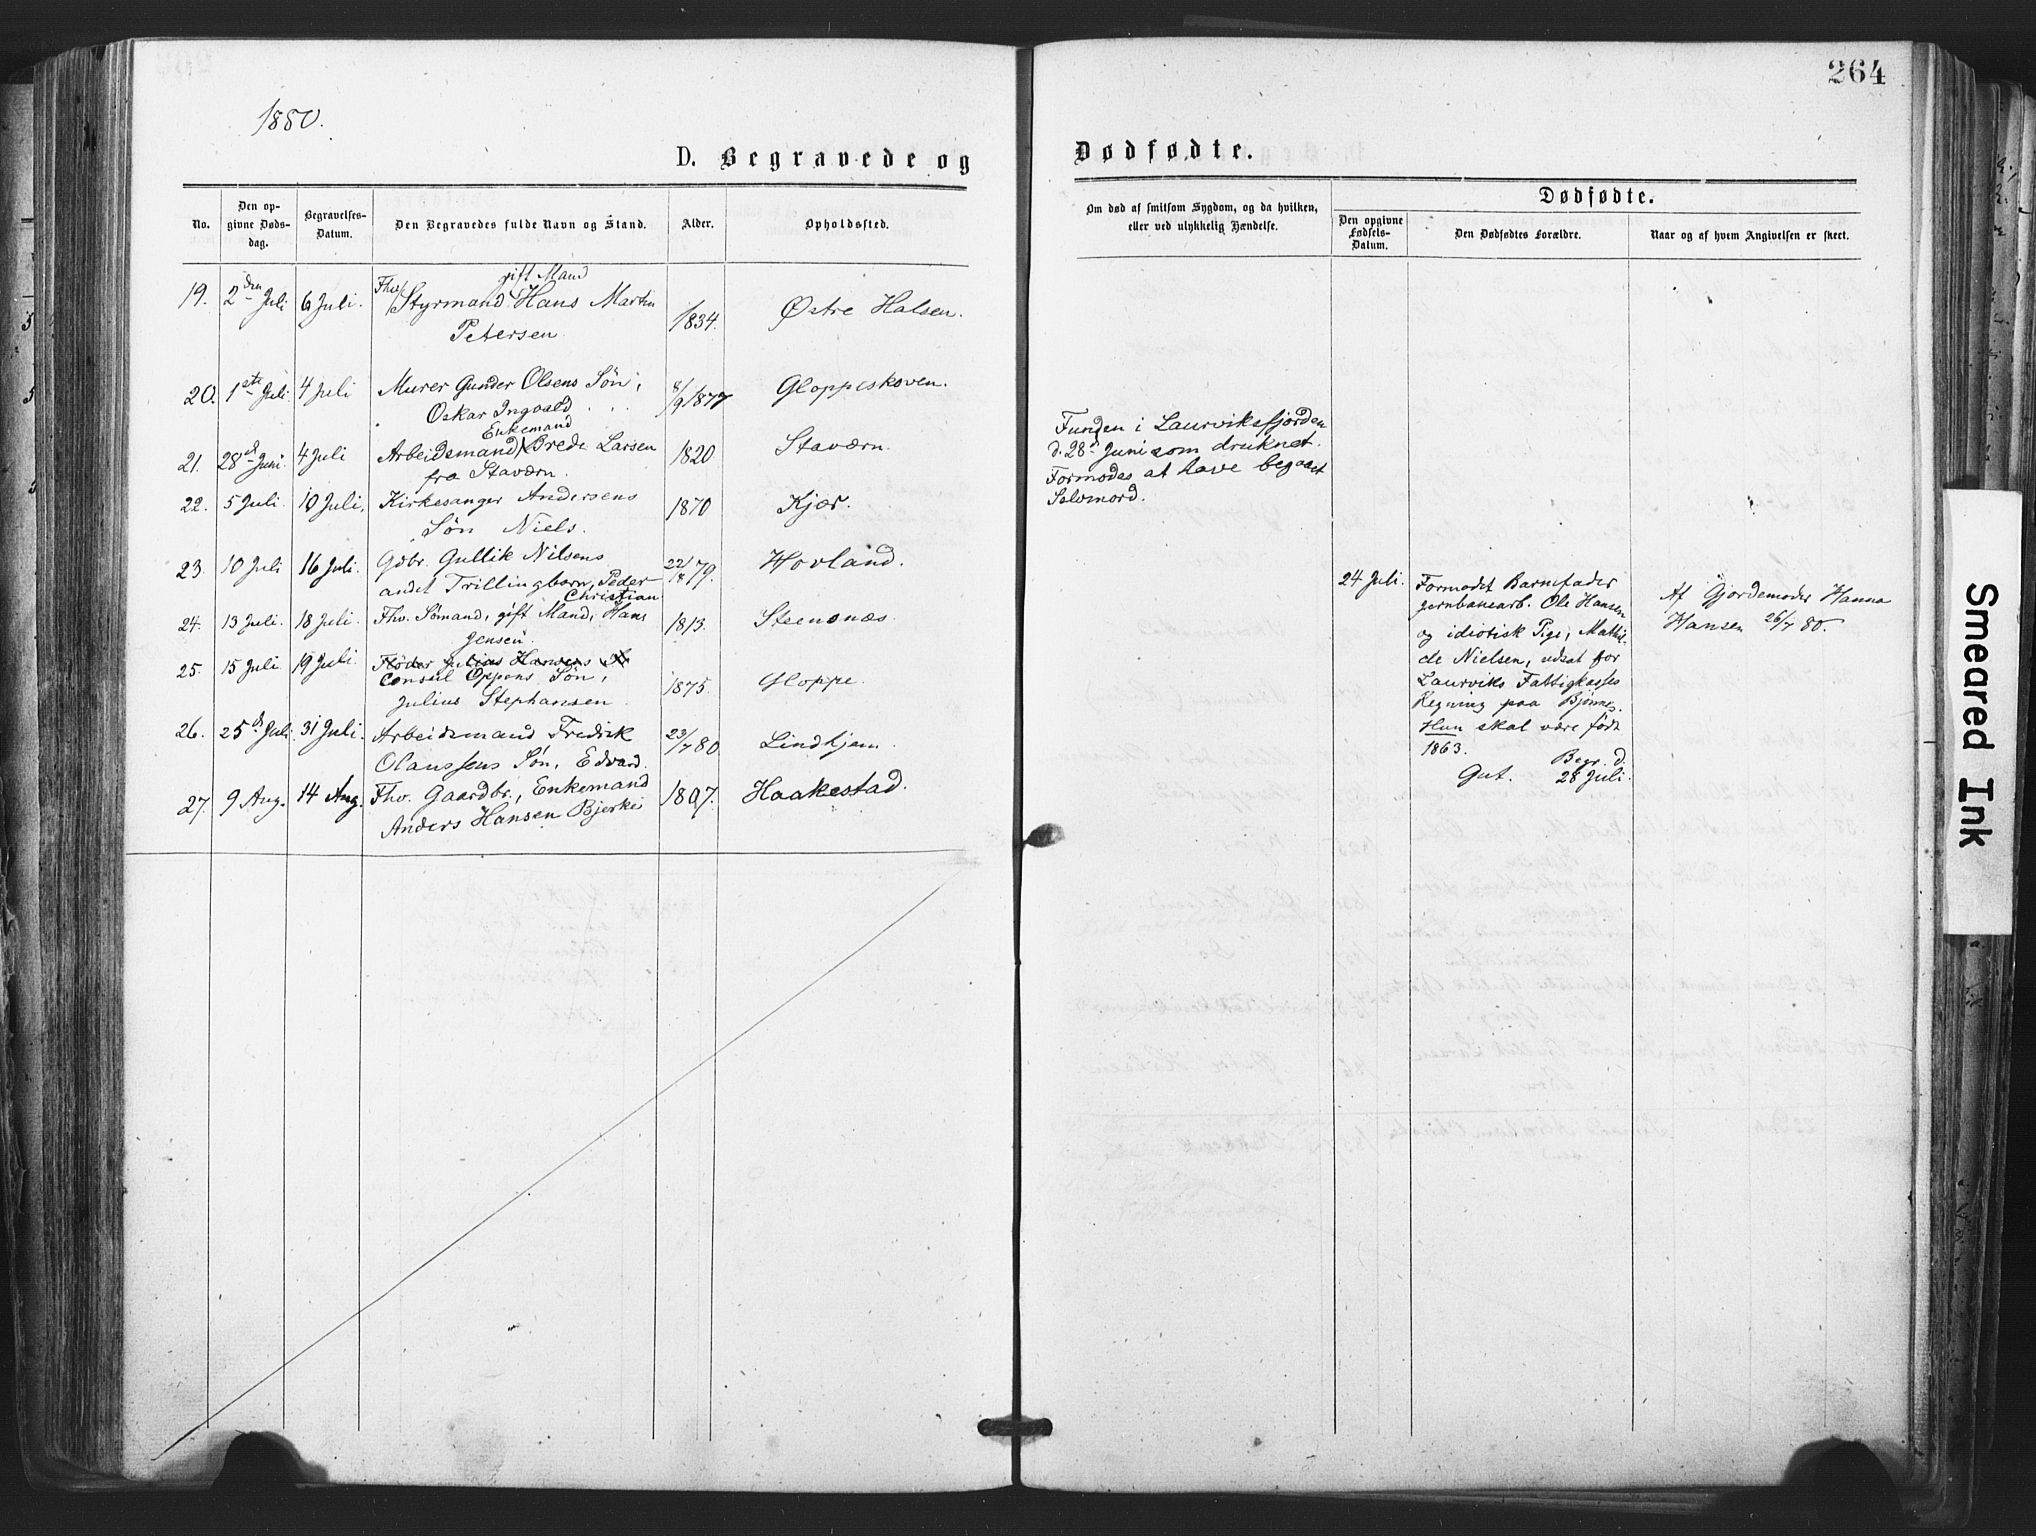 264
1880.
D. Begravede og
Dødfødte.
No.
Den opgivne Dødsdag.
Begravelses-Datum.
Den Begravedes fulde Navn og Stand.
Alder.
Opholdssted.
Om død af smitsom Sygdom, og da hvilken,
eller ved ulykkelig Hændelse.
Dødfødte.
Den opgivne Fødsels-Datum.
Den Dødfødtes Forældre.
Naar og af hvem Angivelsen er skeet.
gift Mand
19. 2den Juli 6 Juli. Fhv. Styrmand Hans Martin
Petersen. 1834. Østre Halsen.
20. 1ste Juli 4 Juli Murer Gunder Olsens Søn, 8/9 1877 Gloppeskoven.
Oskar Ingvald
Enkemand
21. 28d Juni. 4 Juli Arbeidsmand Brede Larsen 1820 Staværn.
fra Staværn.
Funden i Laurviksfjorden
d. 28d Juni som druknet.
Formodes at have begaaet
Selvmord.
22. 5 Juli. 10 Juli. Kirkesanger Andersens 1870 Kjær.
Søn Niels.
23. 10 Juli 16 Juli. Gdbr. Gullik Nilsens 79. Hovland.
andet Trillingbarn, Peder
Christian
24. 13 Juli. 18 Juli. Fhv. Sømand, gift Mand, Hans 1813. Steensnæs.
Jensen.
25. 15 Juli 19 Juli. Fløder Julius Hansens
Consul Oppens Søn, 1875. Gloppe.
Julius Stephansen
26. 25d Juli 31 Juli. Arbeidsmand Fredrik 23/7 80 Lindhjem.
Olaussens Søn, Edvard.
27. 9 Aug. 14 Aug. Fhv. Gaardbr., Enkemand 1807. Haakestad.
Anders Hansen Bjerke
24 Juli. Formodet Barnefader
jernbanearb. Ole Hansen
og idiotisk Pige, Mathil-
de Nielsen, udsat for
Laurviks Fattigkasses
Regning paa Bjønnes.
Hun skal være født
1863.
Begr. d.
Gut. 28 Juli.
Af Gjordemoder Hanna
Hansen 26/7 80.
Smeared Ink